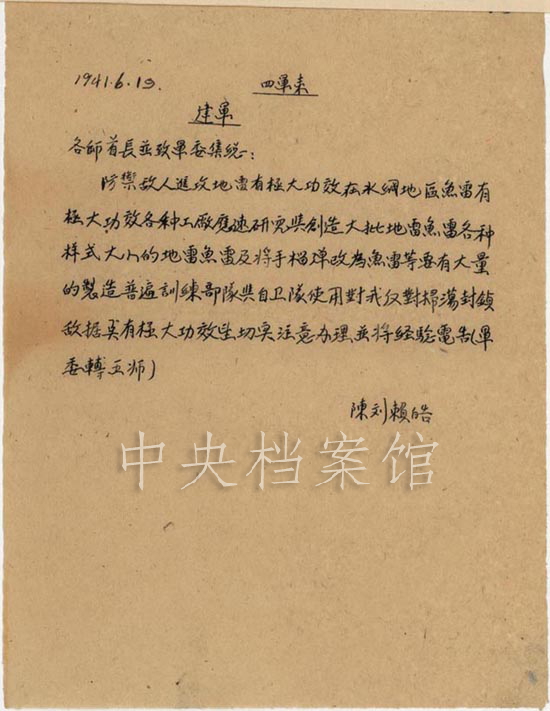 1941.6.13. 四軍来
建軍
各師首長並致軍委集總:
防禦敵人進攻地雷有極大功效在水網地區魚雷有
極大功效各种工廠應速研究與創造大批地雷魚雷各种
样式大小的地雷魚雷及将手榴弹改為魚雷等要有大量
的製造普遍訓練部隊與自卫隊使用對我反對掃蕩封鎖
敌据点有極大功效望切实注意办理並将经验電告(軍
委轉五师)
陳刘賴皓
中央档案馆